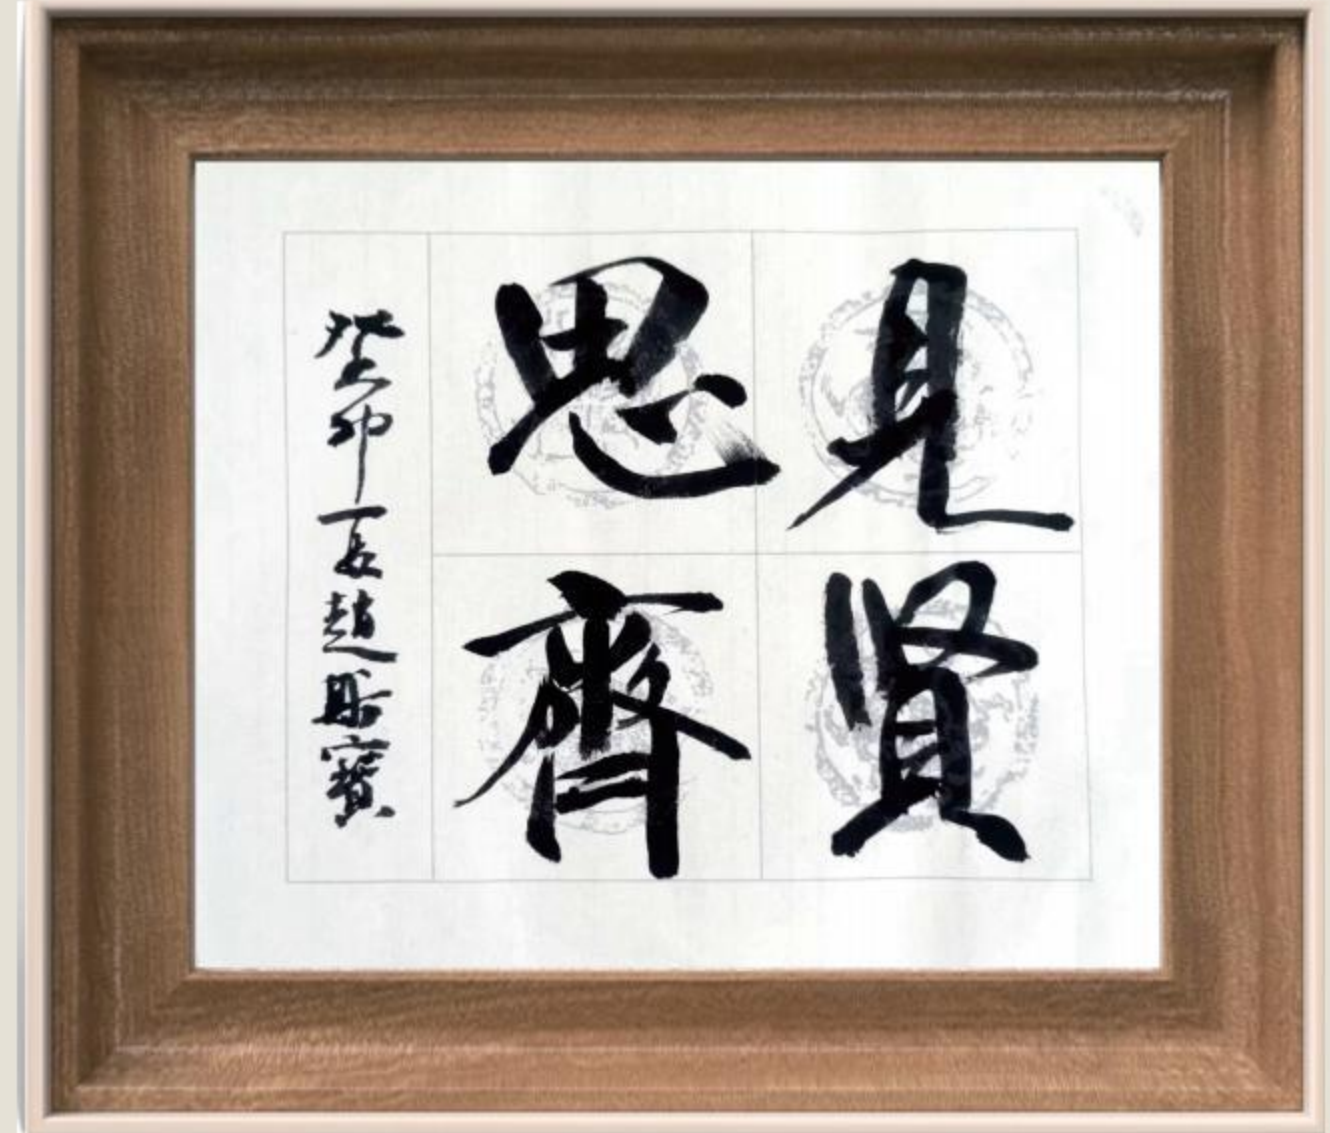 見賢
思齊
癸卯夏趙寶